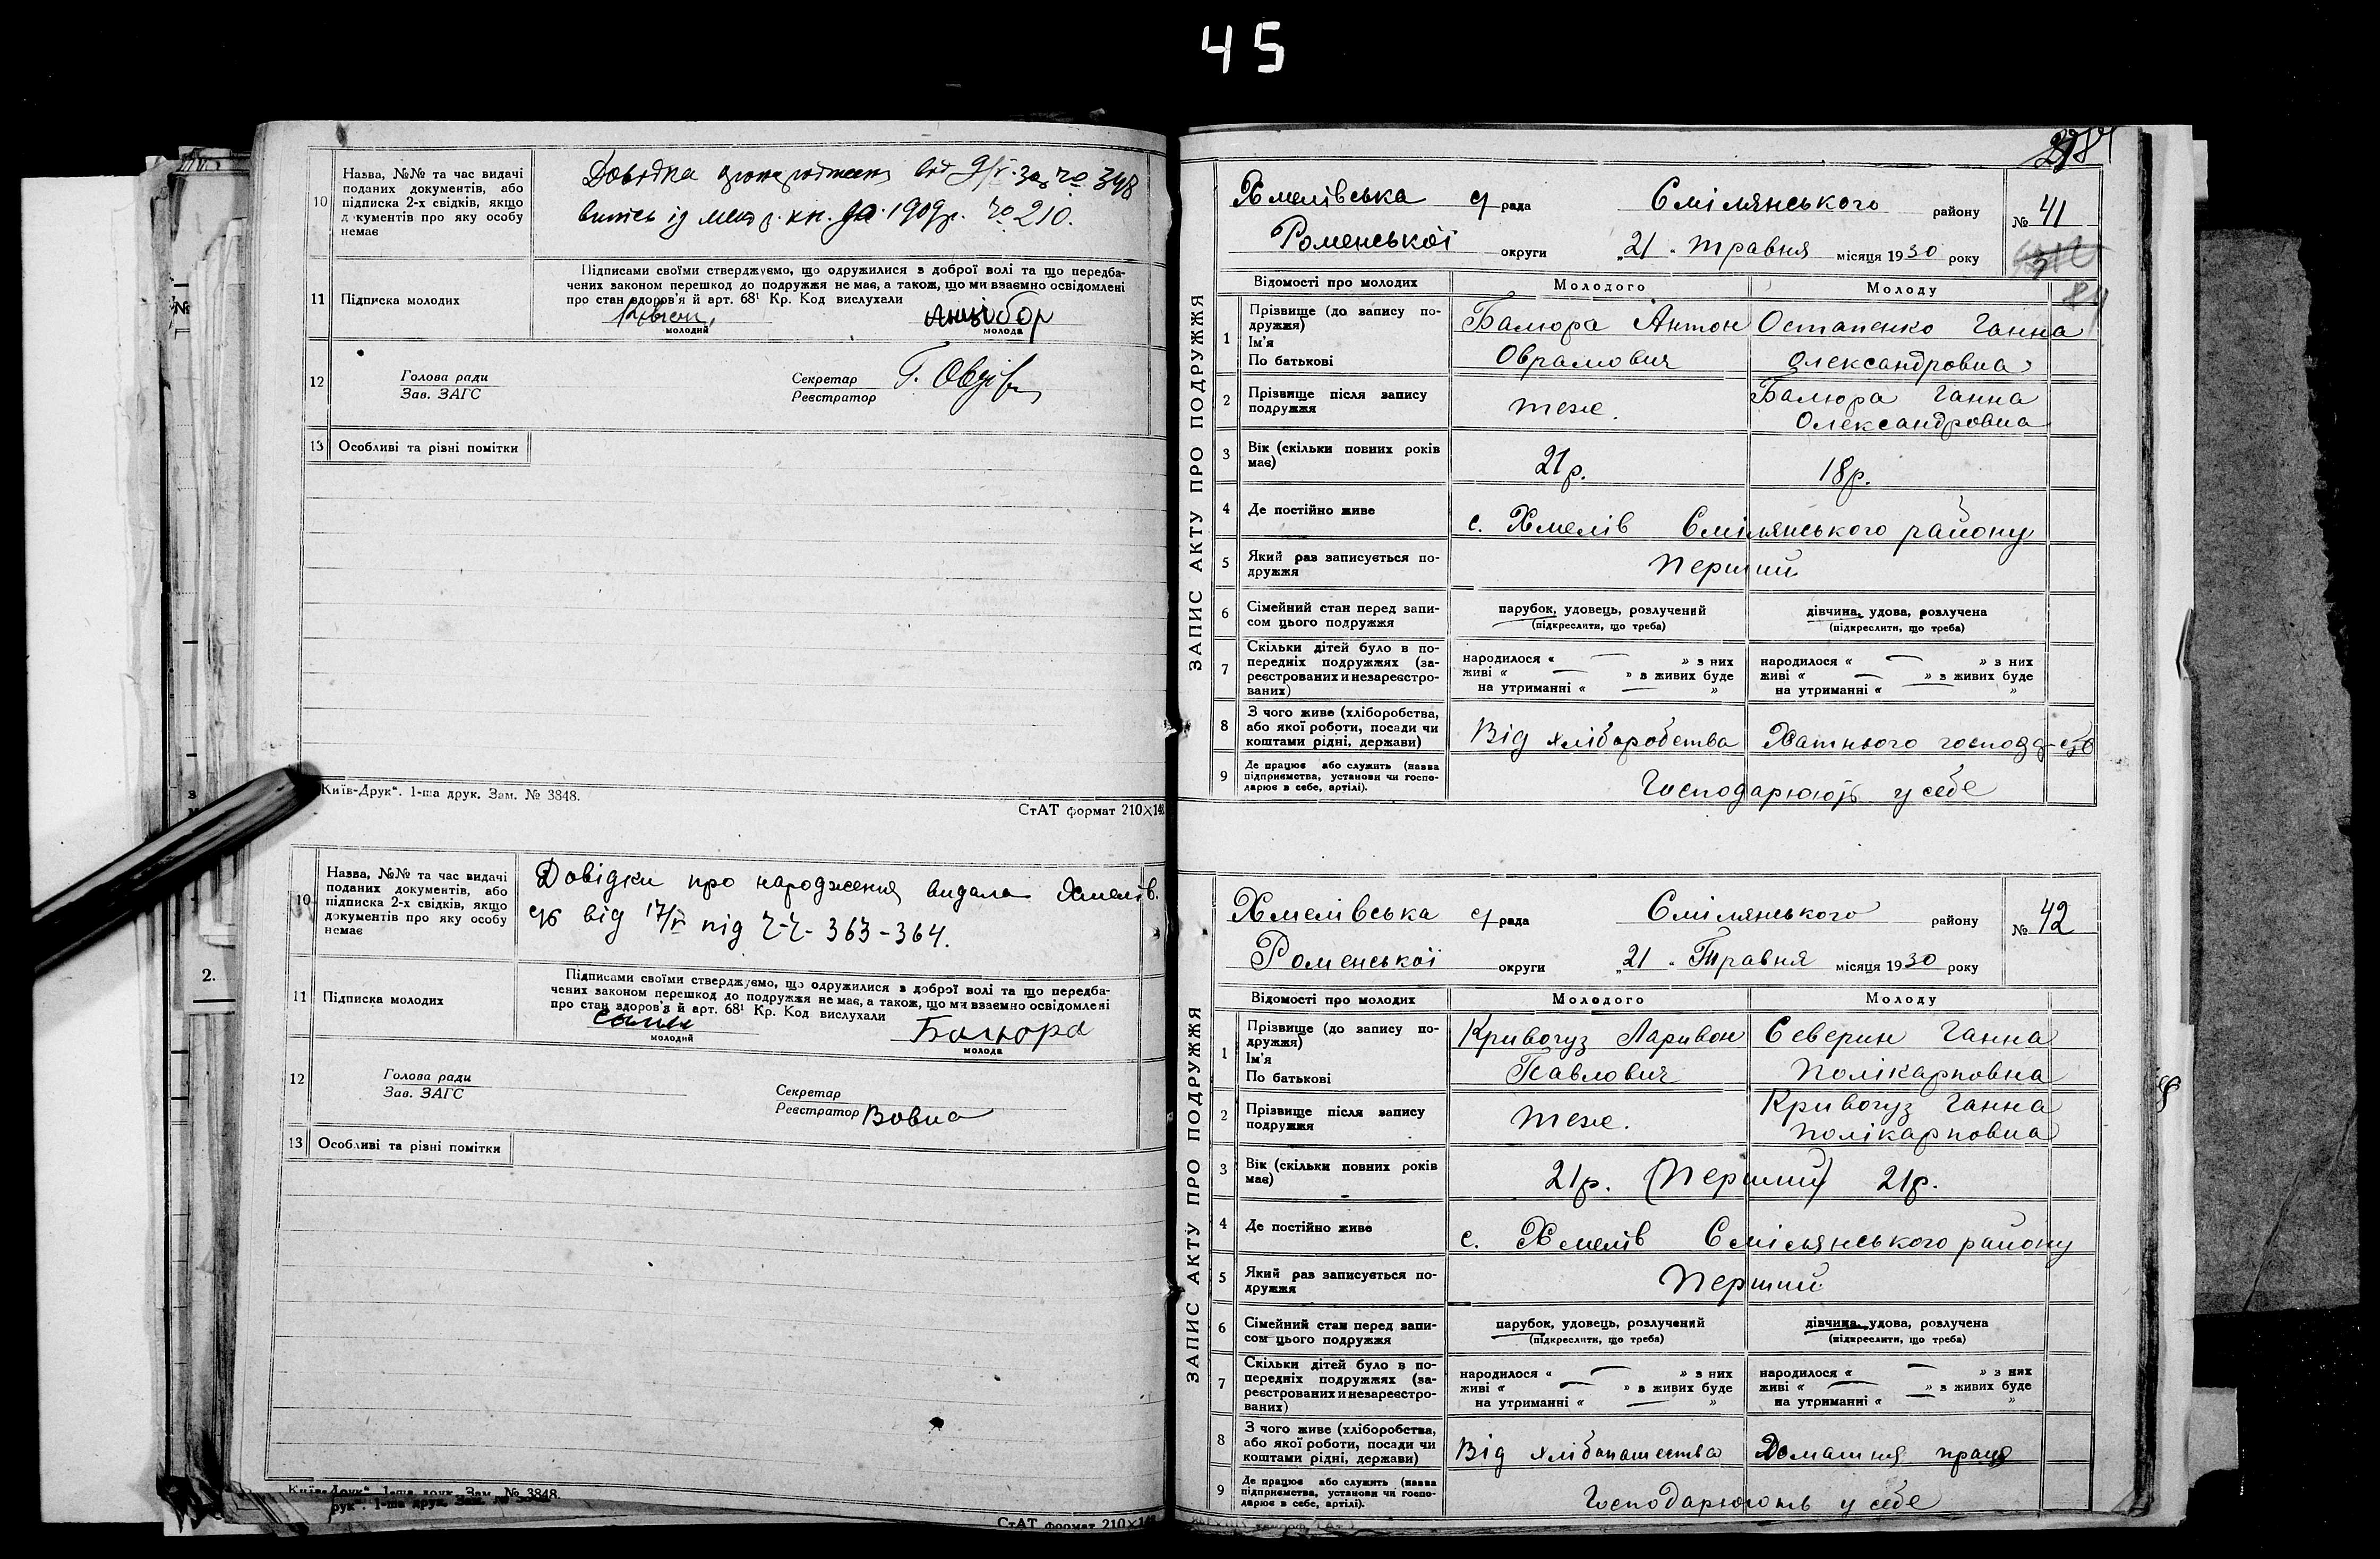 45
10 Назва, №№ та час видачі
поданих документів, або
підписка 2-х свідків, якщо
документів про яку особу
немає
Довідка від 9/V за № 348
витяг із 1909 р. № 210.
11 Підписка молодих
Підписами своїми стверджуємо, що одружилися з доброї волі та що передба-
чених законом перешкод до подружжя не має, а також, що ми взаємно освідомлені
про стан здоров'я й арт. 68¹ Кр. Код вислухали
молодий
молода
12 Голова ради
Зав. ЗАГС
Секретар
Реєстратор
13 Особливі та різні помітки
Київ-Друк". 1-ша друк. Зам. № 3848.
СтАТ формат 210×148
10 Назва, №№ та час видачі
поданих документів, або
підписка 2-х свідків, якщо
документів про яку особу
немає
Довідки про народження видала Хмелів.
с/р від 17/V під ч-ч- 363-364.
11 Підписка молодих
Підписами своїми стверджуємо, що одружилися з доброї волі та що передба-
чених законом перешкод до подружжя не має, а також, що ми взаємно освідомлені
про стан здоров'я й арт. 68¹ Кр. Код вислухали
Балюра
молодий
молода
12 Голова ради
Зав. ЗАГС
Секретар
Реєстратор Вовна
13 Особливі та різні помітки
Київ-Друк". 1-ша друк. Зам. № 3848.
СтАТ формат 210×148
2.
ЗАПИС АКТУ ПРО ПОДРУЖЖЯ
Хмелівська с/рада Смілянського району № 41
Роменської округи „21" травня місяця 1930 року
84
Відомості про молодих Молодого Молоду
1 Прізвище (до запису по-
дружжя)
Ім'я
По батькові
Балюра Антон
Оврамович
Остапенко Ганна
Олександровна
2 Прізвище після запису
подружжя
теж.
Балюра Ганна
Олександровна
3 Вік (скільки повних років
має)
21р. 18р.
4 Де постійно живе
с. Хмелів Смілянського району
5 Який раз записується по-
дружжя
Перший
6 Сімейний стан перед запи-
сом цього подружжя
парубок, удовець, розлучений
(підкреслити, що треба)
дівчина, удова, розлучена
(підкреслити, що треба)
7 Скільки дітей було в по-
передніх подружжях (за-
реєстрованих и незареєстро-
ваних)
народилося « — » з них
живі « — » в живих буде
на утриманні « — »
народилося « — » з них
живі « — » з живих буде
на утриманні « — »
8 З чого живе (хліборобства,
або якої роботи, посади чи
коштами рідні, держави)
Від хліборобства
Хатнього господ-ств
9 Де працює або служить (назва
підприємства, установи чи госпо-
дарює в себе, артілі).
Господарюють у себе
ЗАПИС АКТУ ПРО ПОДРУЖЖЯ
Хмелівська с/рада Смілянського району № 42
Роменської округи „21" Травня місяця 1930 року
Відомості про молодих Молодого Молоду
1 Прізвище (до запису по-
дружжя)
Ім'я
По батькові
Кривогуз Ларивон
Павлович
Северин Ганна
Полікарповна
2 Прізвище після запису
подружжя
теж.
Кривогуз Ганна
Полікарповна
3 Вік (скільки повних років
має)
21р. (Перший) 21р.
4 Де постійно живе
с. Хмелів Смілянського району
5 Який раз записується по-
дружжя
Перший
6 Сімейний стан перед запи-
сом цього подружжя
парубок, удовець, розлучений
(підкреслити, що треба)
дівчина, удова, розлучена
(підкреслити, що треба)
7 Скільки дітей було в по-
передніх подружжях (за-
реєстрованих и незареєстро-
ваних)
народилося « — » з них
живі « — » в живих буде
на утриманні « — »
народилося « — » з них
живі « — » з живих буде
на утриманні « — »
8 З чого живе (хліборобства,
або якої роботи, посади чи
коштами рідні, держави)
Від хлібопашества
Домашня праця
9 Де працює або служить (назва
підприємства, установи чи госпо-
дарює в себе, артілі).
Господарюють у себе